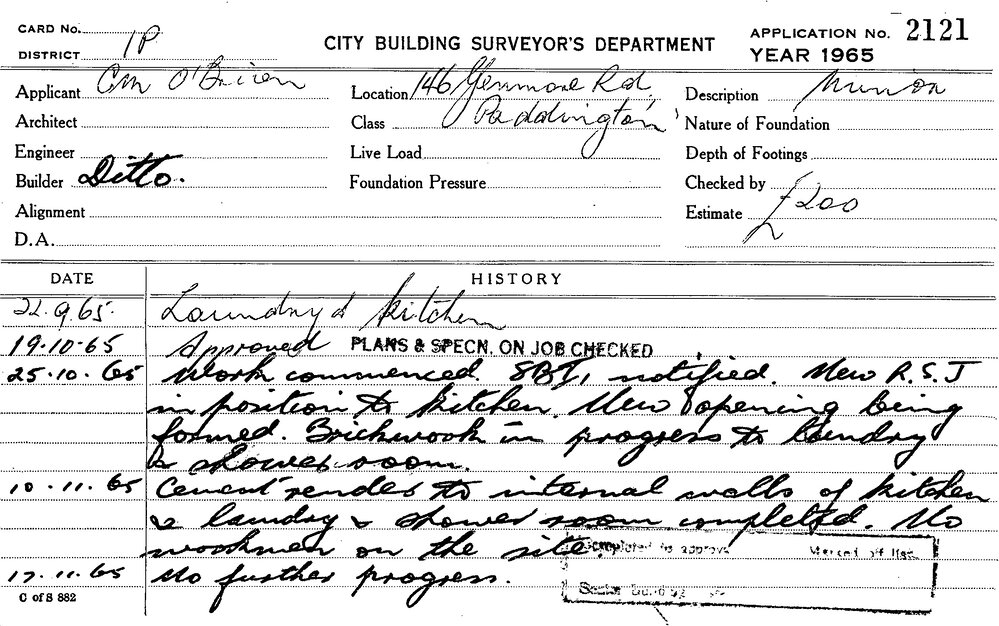 CARD No.
DISTRICT 1P
CITY BUILDING SURVEYOR'S DEPARTMENT
APPLICATION No. 2121
YEAR 1965
Applicant Cm O'Brien
Location 146 Glenmore Rd,
Paddington
Description
Architect
Class
Nature of Foundation
Engineer
Live Load
Depth of Footings
Builder Ditto.
Foundation Pressure
Checked by
Alignment
Estimate £200
D.A.
DATE
HISTORY
22.9.65. Laundry & kitchen
19.10.65 Approved PLANS & SPECN. ON JOB CHECKED
25.10.65 Work commenced. SBI, notified. New R.S.J
in position to kitchen. New opening being
formed. Brickwork in progress to laundry
& shower room.
10.11.65 Cement render to internal walls of kitchen
& laundry & shower room completed. No
workmen on the site.
Completed to approv
Marked off
17.11.65 No further progress.
C of S 882